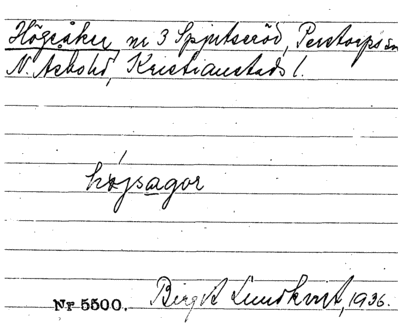 Högaåker nr 3 Spjutseröd, Perstorps sn
N. Åsbohd, Kristianstads l.
hǿjsagor
Nr 5500. Birgit Lundkvist, 1936.